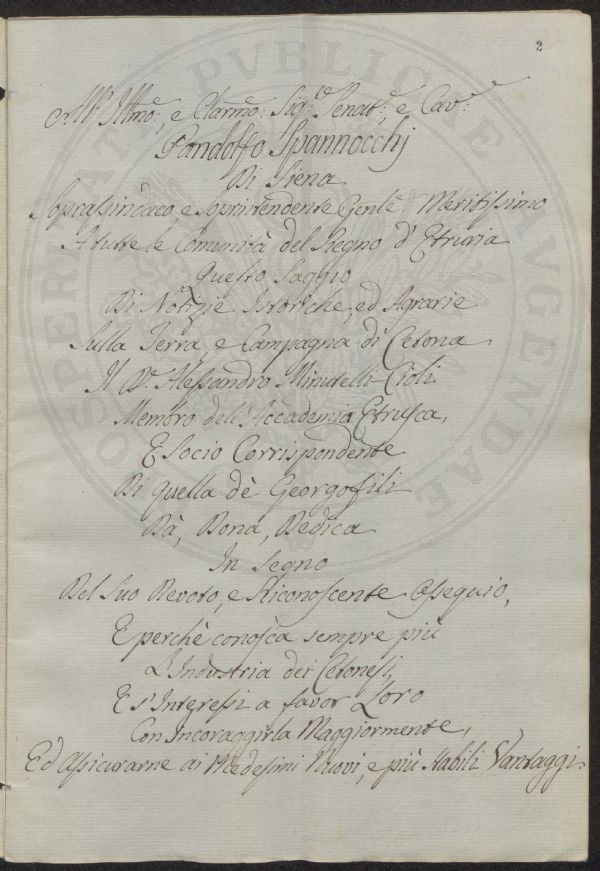 2
All' Illmo:, e Clarmo: Sigre. Senat:, e Cav:
Pandolfo Spannocchj
Di Siena
Soprassindaco, e Soprintendente Gentè: Meritissimo
A tutte le Comunità del Regno d'Etruria
Questo Saggio
Di Notizie Istoriche, ed Agrarie
Sulla Terra, e Campagna di Cetona
Il Dr. Alessandro Minutelli Cioli
Membro dell'Accademia Etrusca,
E Socio Corrispondente
Di quella dè Georgofili
Dà, Dona, Dedica
In Segno
Del Suo Devoto, e Riconoscente Ossequio,
E perchè conosca sempre più
L'Industria dei Cetonesi,
E s'Interessi a favor Loro
Con Incoraggirla Maggiormente,
Ed Assicurarne ai Medesimi Nuovi, e più Stabili Vantaggi.
PROSPERITATI PUBLICAE AUGENDAE